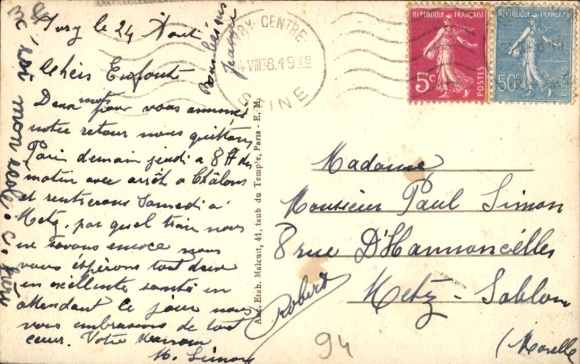 Ivry le 24 Aout
Chers Enfants
Deux mots pour vous annoncer
notre retour nous quittons
Paris demain jeudi a 8 H du
matin avec arrêt a Châlons
et rentrerons Samedi a
Metz, par quel train nous
ne savons encore nous
vous espérons tout deux
en excellente santé en
attendant ce jour nous
vous embrassons de tout
coeur. Votre Maman
M. Simon
Bons baisers
IVRY-CENTRE
SEINE
RÉPUBLIQUE FRANÇAISE
5c
POSTES
50c
Madame
Monsieur Paul Simon
8 rue D'Hannoncelles
Metz-Sablon
(Moselle)
Robert
94
Anc. Etab. Malcuit, 41, faub du Temple, Paris - E. M.